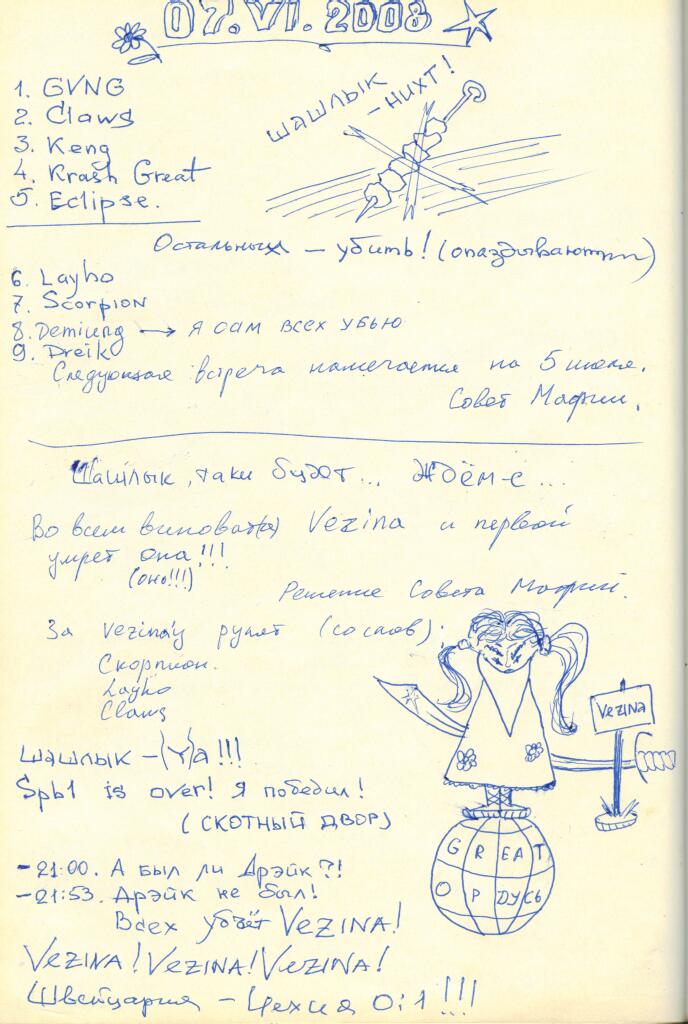 07.VI.2008
1. GVNG
2. Claws
3. Keng
4. Krash Great
5. Eclipse.
ШАШЛЫК
– НИХТ!
Остальных – убить! (опаздывают)
6. Layho
7. Scorpion
8. Demiurg → Я САМ ВСЕХ УБЬЮ
9. Dreik
Следующая встреча намечается на 5 июля.
Совет Мафии.
Шашлык, таки будет... Ждём-с...
Во всем виноват(а) Vezina и первой
умрет она!!!
(оно!!!)
Решение Совета Мафий.
За Vezina'у рулят (со слов):
Скорпион.
Layho
Claws
VEZINA
ШАШЛЫК – (Y)A !!!
Spb1 is over! Я победил!
(СКОТНЫЙ ДВОР)
GREAT
О РДУСЬ
– 21:00. А БЫЛ ЛИ Дрэйк?!
– 21:53. Дрэйк не был!
Всех убьёт VEZINA!
VEZINA! VEZINA! VEZINA!
Швейцария – Чехия 0:1!!!